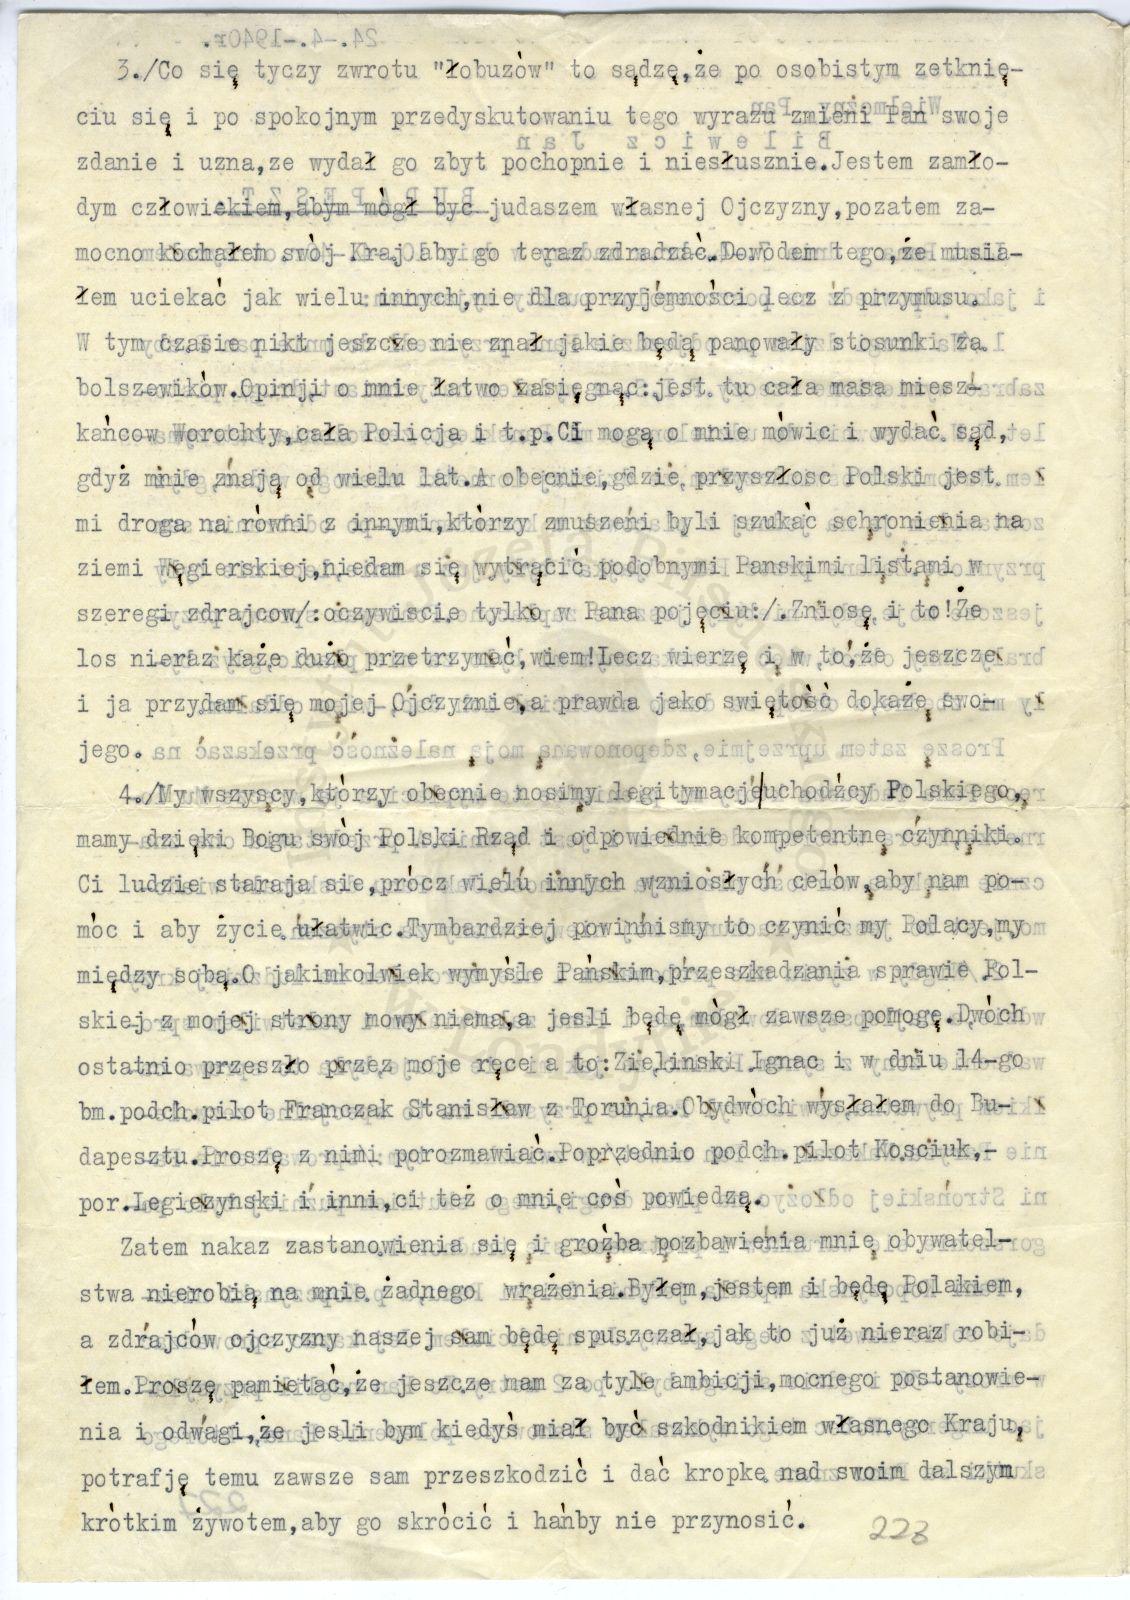 3./Co się tyczy zwrotu "łobuzów" to sądzę,że po osobistym zetknię-
ciu się i po spokojnym przedyskutowaniu tego wyrazu zmieni Pan swoje
zdanie i uzna,ze wydał go zbyt pochopnie i niesłusznie.Jestem zamło-
dym człowiekiem,abym mógł być judaszem własnej Ojczyzny,pozatem za-
mocno kochałem swój Kraj aby go teraz zdradzać.Dowodem tego,że musia-
łem uciekać jak wielu innych,nie dla przyjemności lecz z przymusu.
W tym czasie nikt jeszcze nie znał jakie będą panowały stosunki za
bolszewików.Opinji o mnie łatwo zasięgnąc:jest tu cała masa miesz-
kańcow Worochty,cała Policja i t.p.CI mogą o mnie mówic i wydać sąd,
gdyż mnie znają od wielu lat.A obecnie,gdzie przyszłosc Polski jest
mi droga na równi z innymi,którzy zmuszeni byli szukać schronienia na
ziemi Węgierskiej,niedam się wytrącić podobnymi Panskimi listami w
szeregi zdrajcow/:oczywiscie tylko w Pana pojęciu:/.Zniosę i to!Że
los nieraz każe dużo przetrzymać,wiem!Lecz wierzę i w to,że jeszcze
i ja przydam się mojej Ojczyznie,a prawda jako swiętość dokaże swo-
jego.
4./My wszyscy,którzy obecnie nosimy legitymacje uchodźcy Polskiego,
mamy dzięki Bogu swój Polski Rząd i odpowiednie kompetentne czynniki.
Ci ludzie staraja sie,prócz wielu innych wzniosłych celów,aby nam po-
móc i aby życie ułatwic.Tymbardziej powinnismy to czynić my Polacy,my
między sobą.O jakimkolwiek wymyśle Pańskim,przeszkadzania sprawie Pol-
skiej z mojej strony mowy niema,a jesli będę mógł zawsze pomogę.Dwóch
ostatnio przeszło przez moje ręce a to:Zielinski Ignac i w dniu 14-go
bm.podch.pilot Franczak Stanisław z Torunia.Obydwóch wysłałem do Bu-
dapesztu.Proszę z nimi porozmawiać.Poprzednio podch.pilot Kosciuk,-
por.Legiezynski i inni,ci też o mnie coś powiedzą.
Zatem nakaz zastanowienia się i groźba pozbawienia mnie obywatel-
stwa nierobią na mnie żadnego wrażenia.Byłem,jestem i będę Polakiem,
a zdrajców ojczyzny naszej sam będę spuszczał,jak to już nieraz robi-
łem.Proszę pamietać,że jeszcze mam za tyle ambicji,mocnego postanowie-
nia i odwagi,że jesli bym kiedyś miał być szkodnikiem własnego Kraju,
potrafję temu zawsze sam przeszkodzić i dać kropke nad swoim dalszym
krótkim żywotem,aby go skrócić i hańby nie przynosić.
223